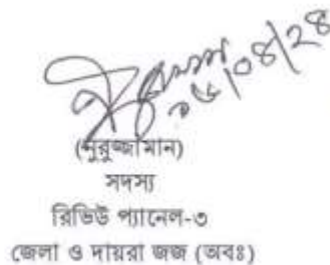 ১৫/০৪/২৪
(নুরুজ্জামান)
সদস্য
রিভিউ প্যানেল-৩
জেলা ও দায়রা জজ (অবঃ)